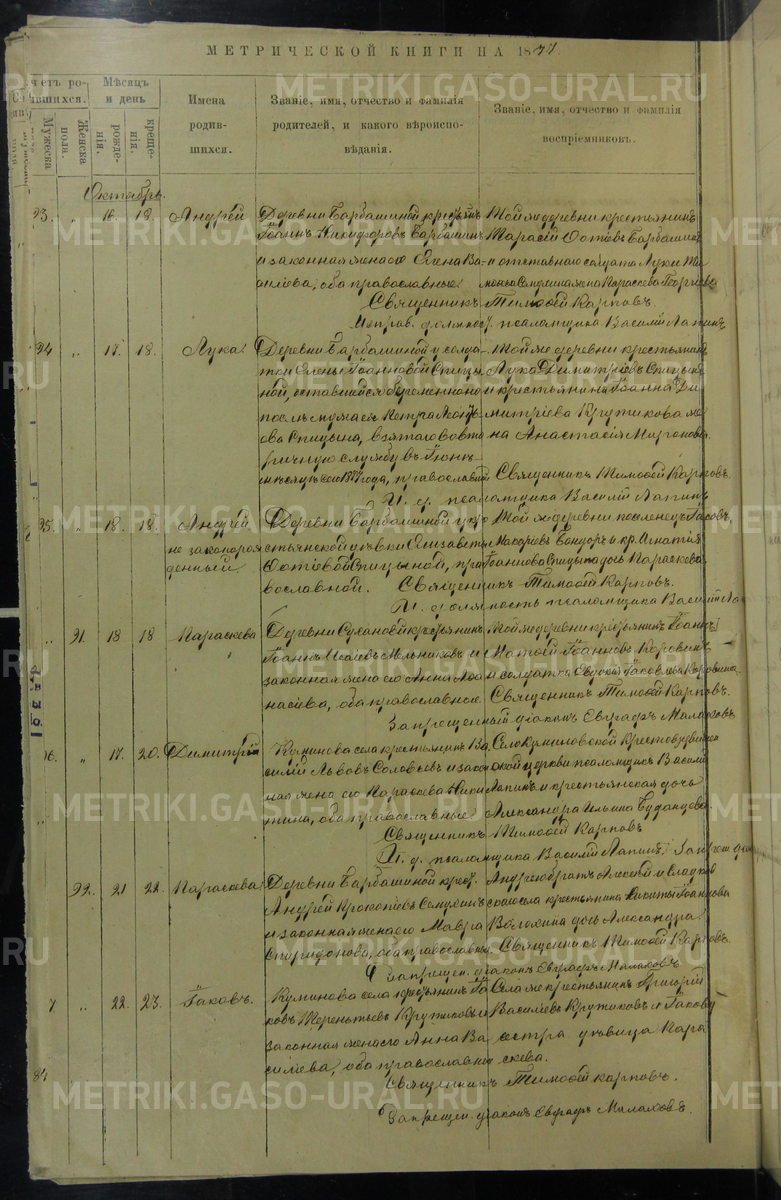 МЕТРИЧЕСКОЙ КНИГИ НА 1877.
четъ ро-
вшихся.
Мужеска
пола.
Женска
пола.
Мѣсяцъ
и день
рожде-
нія.
креще-
нія.
Имена
родив-
шихся.
Званіе, имя, отчество и фамилія
родителей, и какого вѣроиспо-
вѣданія.
Званіе, имя, отчество и фамилія
воспріемниковъ.
Октябрь.
93. " 16. 18. Андрей
Деревни Барбашиной крестьянинъ
Іоаннъ Никифоровъ Барбашинъ
и законная жена его Елена Ва-
силіева, оба православные.
Той же деревни крестьянинъ
Тарасій
и отставнаго солдата Луки
жена Параскева Георгіева
Священникъ Тимоѳей Карповъ.
Исправ. должност. псаломщика Василій Лапинъ
94 " 17. 18. Лука.
Деревни Барбашиной у солдат-
ки Елены Іоанновой Спицы-
ной, оставшейся беременною
послѣ мужа ея Петра
Спицына, взятаго въ
службу въ Іюнѣ
мѣсяцѣ сего 1877 года, православной
Той же деревни крестьянинъ
Лука Димитріевъ Спицынъ
и крестьянина Іоанна Ди-
митріева Крутикова же-
на Анастасія Миронова.
Священникъ Тимоѳей Карповъ.
И. д. псаломщика Василій Лапинъ
95. " 18. 18. Андрей
незаконорож-
денный.
Деревни Барбашиной у кре-
стьянской дѣвки Елизаветы
Спицыной, пра-
вославной.
Той же деревни поселенецъ Іаковъ
Макаріевъ и кр. Игнатія
Іоаннова Спицына дочь Параскева.
Священникъ Тимоѳей Карповъ.
И. должность псаломщика Василій Ла
" 91 18 18 Параскева
Деревни Сухановой крестьянинъ
Іоаннъ Исаевъ Мельниковъ и
законная жена его Анна Аѳа-
насіева, оба православные
Той же деревни крестьянинъ Іоаннъ
Матѳій Іоанновъ Коровинъ
и солдатка Евдокія Іаковлева Коровина.
Священникъ Тимоѳей Карповъ.
Запрещенный діаконъ Евграфъ Малаховъ
96. " 17. 20. Димитрій
Куминова села крестьянинъ Ва-
силій Львовъ Соловьевъ и закон-
ная жена его Параскева Ники-
тина, оба православные
Село Куминовской Крестовоздвижен-
ской церкви псаломщикъ Василій
Лапинъ и крестьянская дочь
Александра Ильина Буданцова.
Священникъ Тимоѳей Карповъ
И. д. псаломщика Василій Лапинъ. Запрещ. діа
92. 21 22. Параскева
Деревни Барбашиной крест.
Андрей Прокопіевъ Семухинъ
и законная жена его Мавра
Спиридонова, оба православные.
Андрею братъ Алексій и Сладков-
скаго села крестьянина Никиты Іоаннова
Волохина дочь Александра.
Священникъ Тимоѳей Карповъ.
Запрещен. діаконъ Евграфъ Малаховъ
7 " 22. 23. Іаковъ.
Куминова села крестьянинъ Іа-
ковъ Терентьевъ Крутиковъ и
законная жена его Анна Ва-
силіева, оба православные
Села же крестьянинъ Григорій
Василіевъ Крутиковъ и Іакову
сестра дѣвица Пара-
скева.
Священникъ Тимоѳей Карповъ.
Запрещен. діаконъ Евграфъ Малаховъ.
METRIKI.GASO-URAL.RU